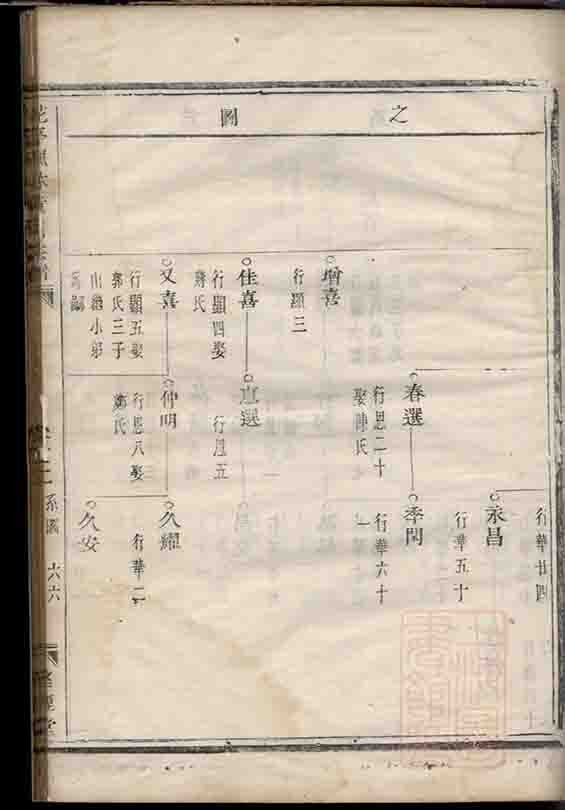 之
圖
行華廿四
永昌
行華五十
春選
行思二十
娶陳氏
季閏
行華六十
一
增喜
行顯三
佳喜
行顯四娶
蔣氏
直選
行思五
又喜
行顯五娶
郭氏三子
山繼小弟
為嗣
仲明
行思八娶
氏
久耀
行華二
久安
系圖
六六